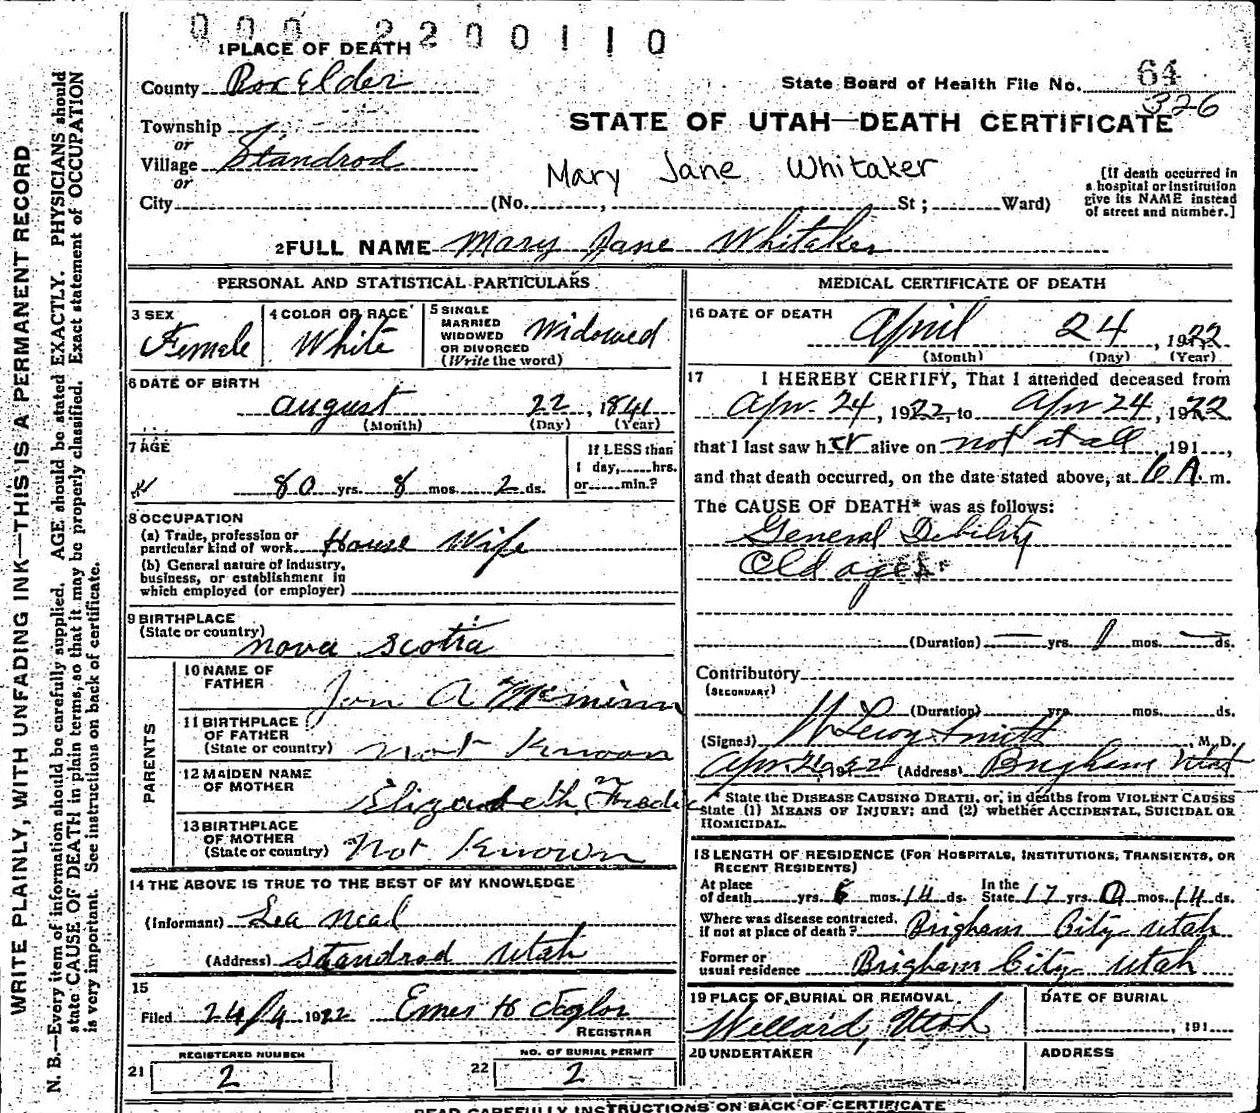 000 2200110
1 PLACE OF DEATH
County Box Elder
State Board of Health File No. 64
326
Township
or
Village Standrod
or
City (No. , St ; Ward)
STATE OF UTAH—DEATH CERTIFICATE
Mary Jane Whitaker
[If death occurred in
a hospital or institution
give its NAME instead
of street and number.]
2 FULL NAME Mary Jane Whitaker
PERSONAL AND STATISTICAL PARTICULARS
3 SEX
Female
4 COLOR OR RACE
White
5 SINGLE
MARRIED
WIDOWED
OR DIVORCED
(Write the word)
Widowed
6 DATE OF BIRTH
august 22, 1841
(Month) (Day) (Year)
7 AGE
80 yrs. 8 mos. 2 ds.
If LESS than
1 day, hrs.
or min.?
8 OCCUPATION
(a) Trade, profession or
particular kind of work House Wife
(b) General nature of industry,
business, or establishment in
which employed (or employer)
9 BIRTHPLACE
(State or country) nova scotia
PARENTS
10 NAME OF
FATHER
A McMinn
11 BIRTHPLACE
OF FATHER
(State or country) not Known
12 MAIDEN NAME
OF MOTHER
Elizabeth
13 BIRTHPLACE
OF MOTHER
(State or country) Not Known
14 THE ABOVE IS TRUE TO THE BEST OF MY KNOWLEDGE
(Informant) Lea Neal
(Address) Standrod Utah
15
Filed 24/4 1922 H
REGISTRAR
REGISTERED NUMBER
21 2
NO. OF BURIAL PERMIT
22 2
MEDICAL CERTIFICATE OF DEATH
16 DATE OF DEATH
April 24, 1922
(Month) (Day) (Year)
17 I HEREBY CERTIFY, That I attended deceased from
Apr. 24, 1922, to Apr 24, 1922
that I last saw her alive on not at all, 191
and that death occurred, on the date stated above, at 6 A. m.
The CAUSE OF DEATH* was as follows:
General Debility
Old age
(Duration) — yrs. 1 mos. — ds.
Contributory
(SECONDARY)
(Duration) yrs. mos. ds.
(Signed) , M. D.
Apr. 1922 (Address) Brigham Utah
* State the DISEASE CAUSING DEATH, or, in deaths from VIOLENT CAUSES
state (1) MEANS OF INJURY; and (2) whether ACCIDENTAL, SUICIDAL OR
HOMICIDAL.
18 LENGTH OF RESIDENCE (FOR HOSPITALS, INSTITUTIONS, TRANSIENTS, OR
RECENT RESIDENTS)
At place
of death yrs. 6 mos. 14 ds. In the
State 17 yrs. 0 mos. 14 ds.
Where was disease contracted,
if not at place of death? Brigham City Utah
Former or
usual residence Brigham City Utah
19 PLACE OF BURIAL OR REMOVAL
Willard, Utah
DATE OF BURIAL
, 191
20 UNDERTAKER
ADDRESS
READ CAREFULLY INSTRUCTIONS ON BACK OF CERTIFICATE
WRITE PLAINLY, WITH UNFADING INK—THIS IS A PERMANENT RECORD
N. B.—Every item of information should be carefully supplied. AGE should be stated EXACTLY. PHYSICIANS should
state CAUSE OF DEATH in plain terms, so that it may be properly classified. Exact statement of OCCUPATION
is very important. See instructions on back of certificate.